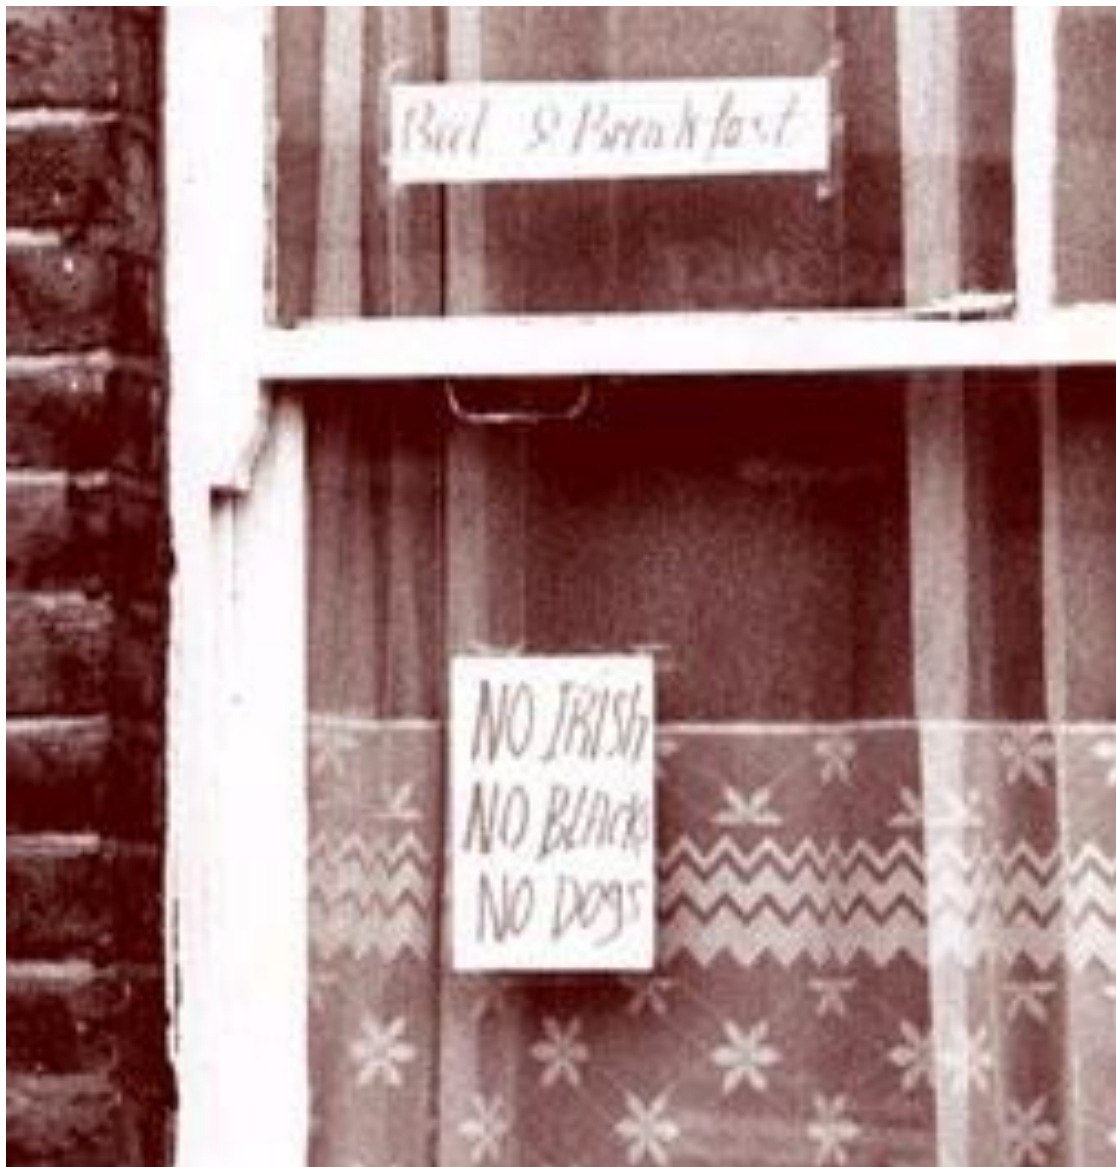 Bed & Breakfast
NO IRISh
NO BLAcks
NO DOgs